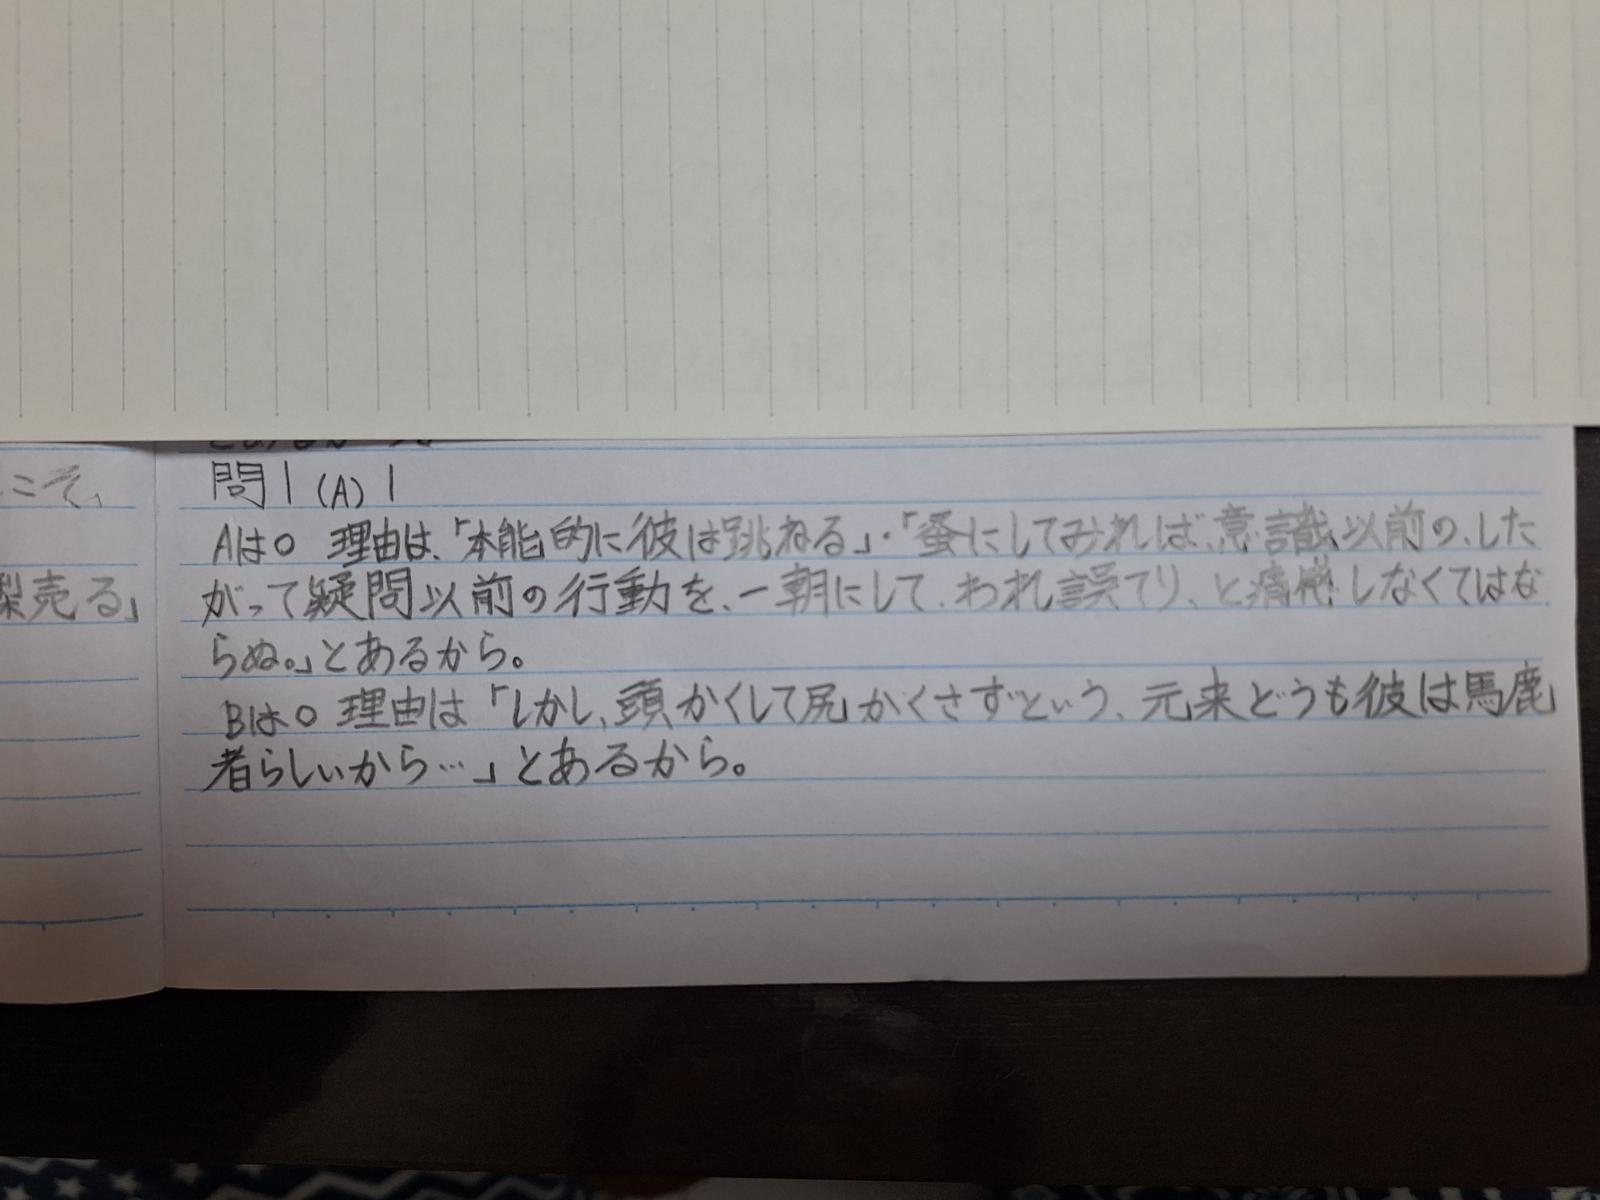 こそ、
梨売る」
問1 (A) 1
Aは○ 理由は、「本能的に彼は跳ねる」・「蚤にしてみれば、意識以前の、した
がって疑問以前の行動を、一朝にして、われ誤てり、と痛感しなくてはな
らぬ。」とあるから。
Bは○ 理由は「しかし、頭かくして尻かくさずという、元来どうも彼は馬鹿
者らしいから…」とあるから。